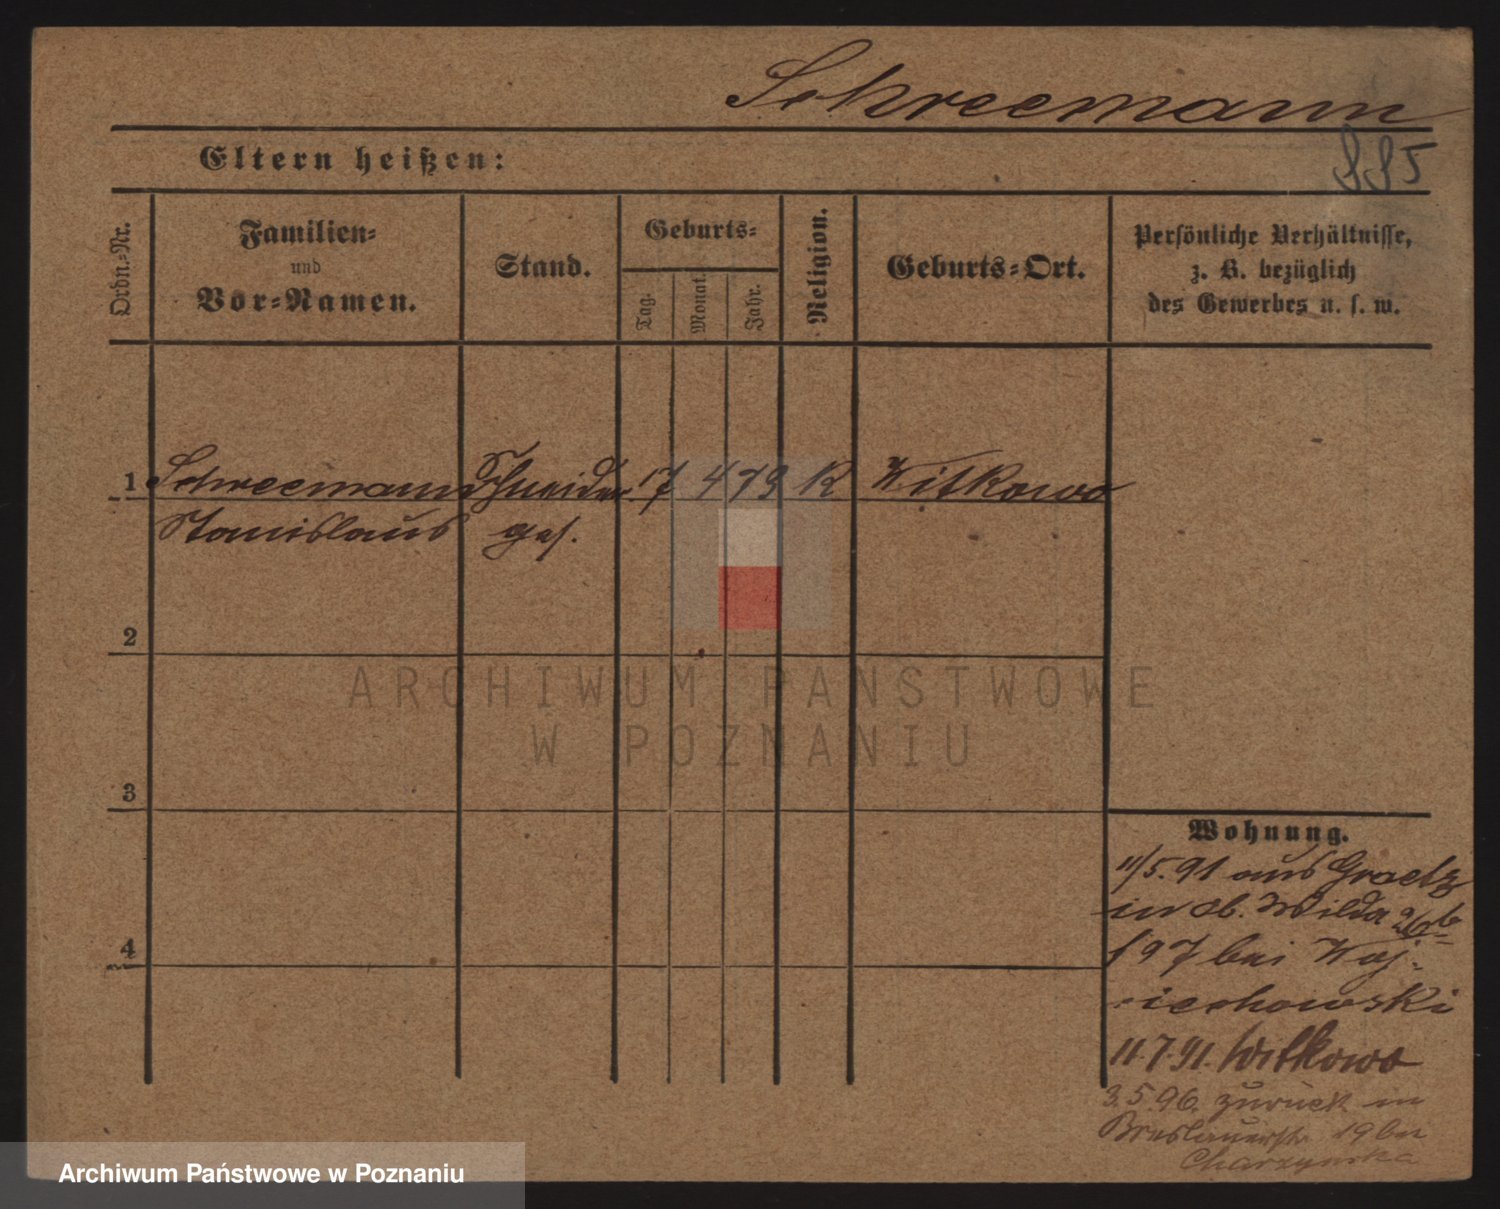 Schreemann
Eltern heißen:
Ordn.-Nr.
Familien-
und
Vor-Namen.
Stand.
Geburts-
Tag.
Monat.
Jahr.
Religion.
Geburts-Ort.
Persönliche Verhältnisse,
z. B. bezüglich
des Gewerbes u. s. w.
1 Schreemann Schneider 17 4 73 K Witkowo
Stanislaus ges.
2
3
4
ARCHIWUM PAŃSTWOWE
W POZNANIU
Wohnung.
11/5.91 aus Graetz
in Ob. Wilda
197 bei Woj-
ciechowski
11.7.91. Witkowo
3.5.96. zurück in
Breslauerstr. 19 bei
Charzynska
Archiwum Państwowe w Poznaniu